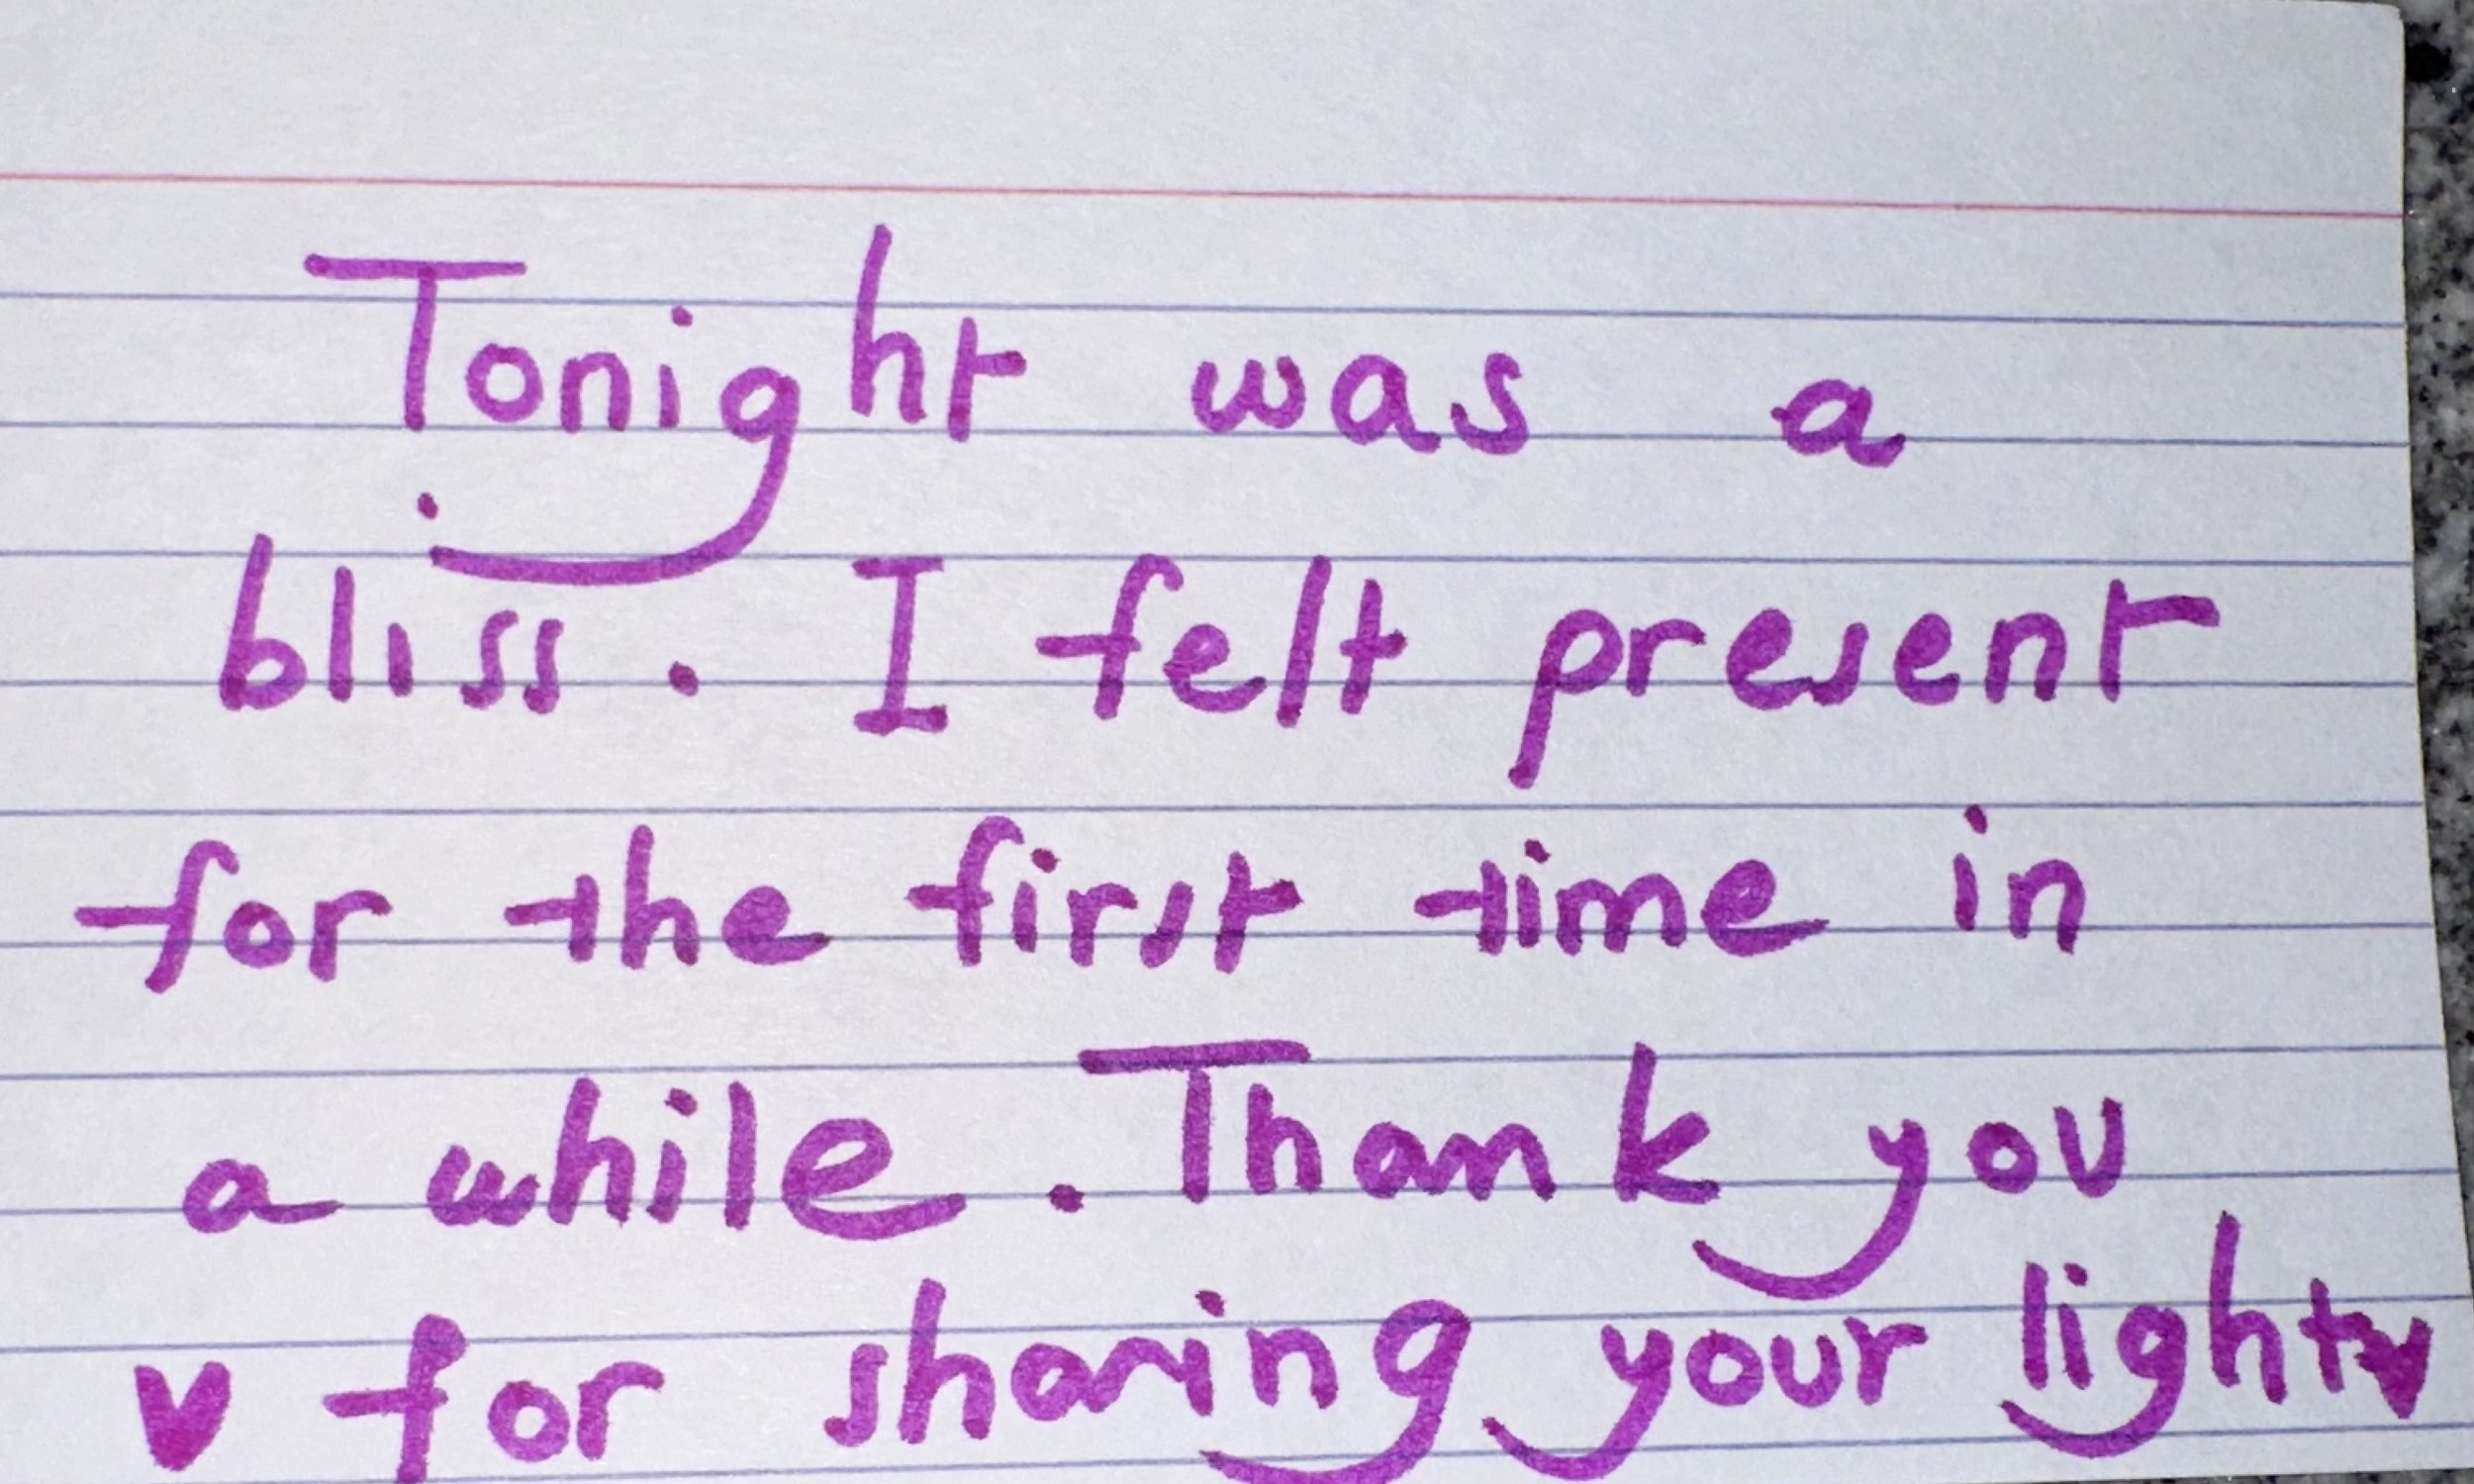 Tonight was a
bliss. I felt present
for the first time in
a while. Thank you
♥ for sharing your light♥